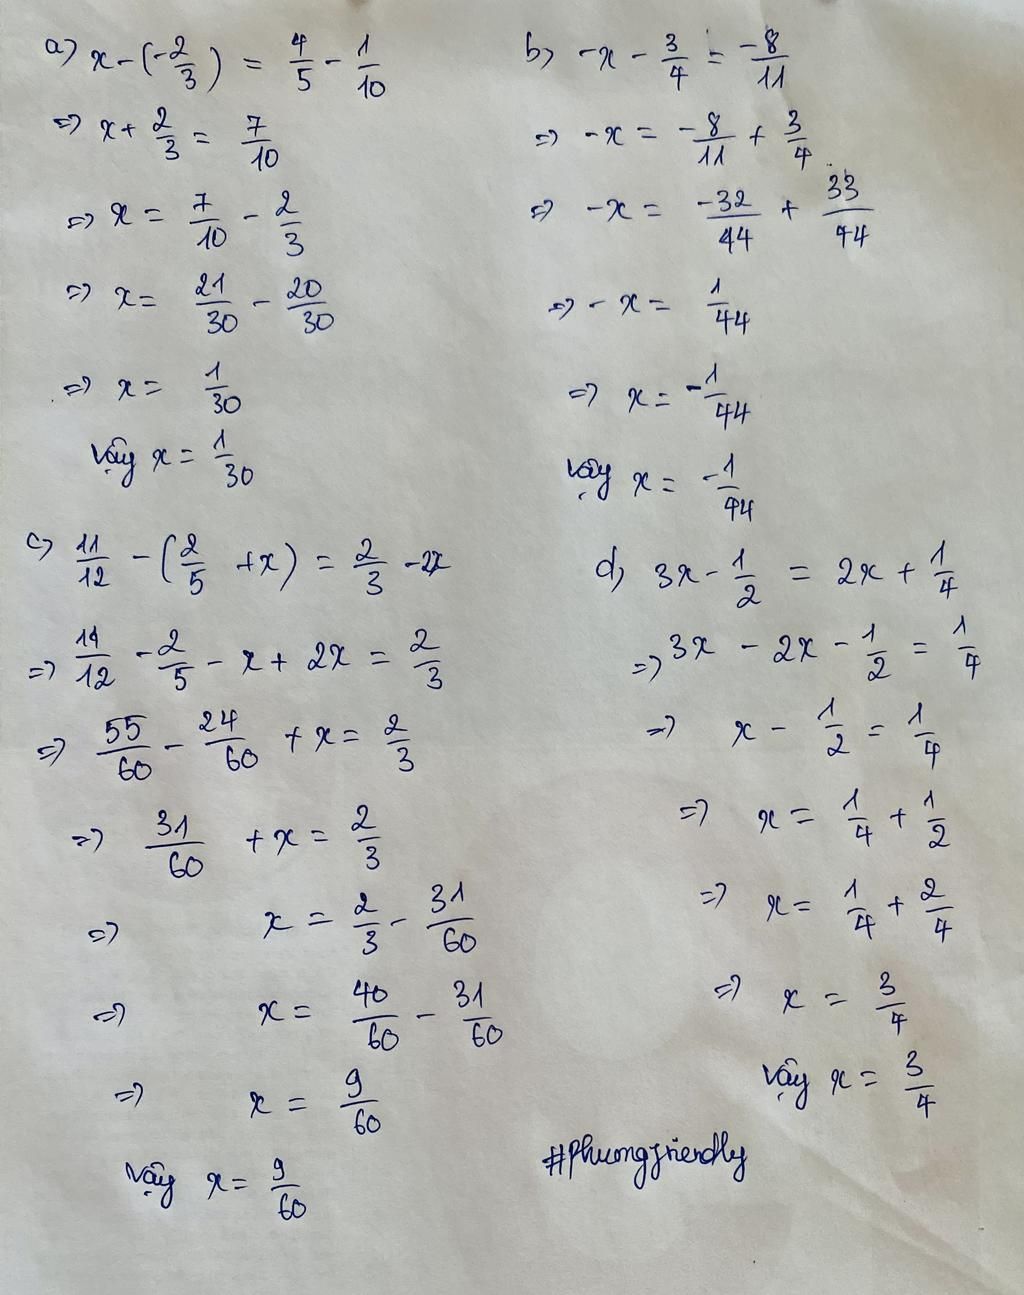 a) x - (-2/3) = 4/5 - 1/10
=> x + 2/3 = 7/10
=> x = 7/10 - 2/3
=> x = 21/30 - 20/30
=> x = 1/30
Vậy x = 1/30
b) -x - 3/4 = -8/11
=> -x = -8/11 + 3/4
=> -x = -32/44 + 33/44
=> -x = 1/44
=> x = -1/44
Vậy x = -1/44
c) 11/12 - (2/5 + x) = 2/3 - 2x
=> 11/12 - 2/5 - x + 2x = 2/3
=> 55/60 - 24/60 + x = 2/3
=> 31/60 + x = 2/3
=> x = 2/3 - 31/60
=> x = 40/60 - 31/60
=> x = 9/60
Vậy x = 9/60
d) 3x - 1/2 = 2x + 1/4
=> 3x - 2x - 1/2 = 1/4
=> x - 1/2 = 1/4
=> x = 1/4 + 1/2
=> x = 1/4 + 2/4
=> x = 3/4
Vậy x = 3/4
#Phuongfriendly